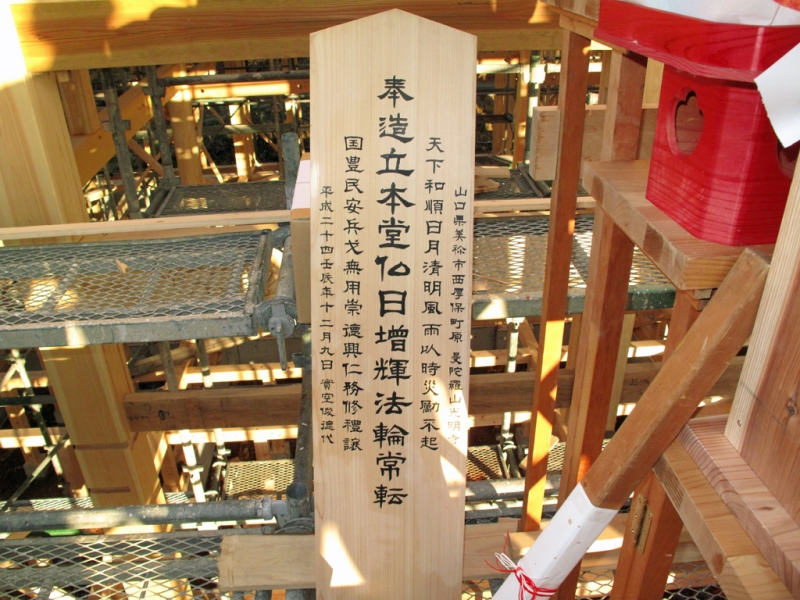 山口県美祢市西厚保町原 曼陀羅山光明寺
天下和順日月清明風雨以時災厲不起
奉造立本堂仏日増輝法輪常転
国豊民安兵戈無用崇德興仁務修禮譲
平成二十四壬辰年十二月九日 實空俊徳代